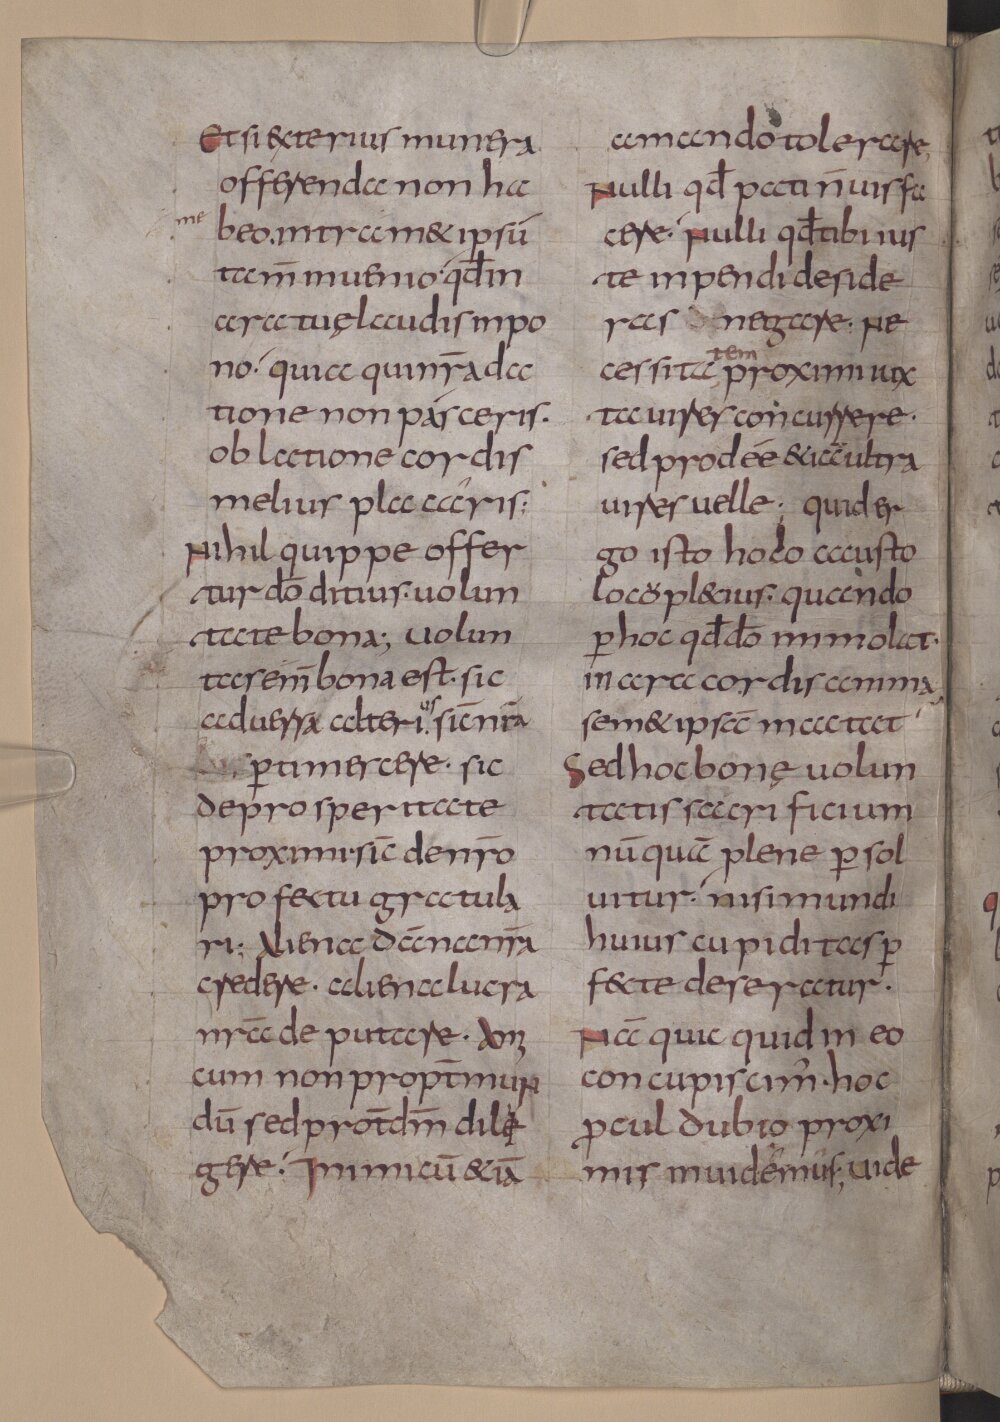 Et si exterius munera
offerenda non ha
beo. intra me & ipsū
tam̄ inuenio. qd̄ in
ara tuę laudis inpo
no. quia qui nr̄a da
tione non pasceris.
oblatione cordis
melius placaris;
Nihil quippe offer
tur dō ditius. uolun
tate bona; uolun
tas em̄ bona est. sic
aduersa alterius. sic nr̄a
p̱timescere. sic
de prosperitate
proximi. sic de nr̄o
profectu gratula
ri; Aliena dāna nr̄a
credere. aliena lucra
nr̄a deputare. Amꝫ
cum non propt̄ mun
dū sed prot̄ dm̄ dili
gere. Inimicū &iā
amando tolerare,
Nulli qd̄ pati n̄ uis fa
cere. Nulli qd̄ tibi ius
te inpendi deside
ras negare. Ne
cessitatem proximi iux
ta uires concurrere.
sed prodeē &iā ultra
uires uelle; quid er
go isto holocausto
locupl&ius. quando
p̱ hoc qd̄ dō immolat.
in ara cordis anima
sem&ipsā mactat
Sed hoc bonę uolun
tatis sacrificium
nūquā plene p̱sol
uitur. nisi mundi
huius cupiditas p̱
fecte deseratur.
Nā quicquid in eo
concupiscim̓. hoc
p̱cul dubio proxi
mis inuidemus; inde